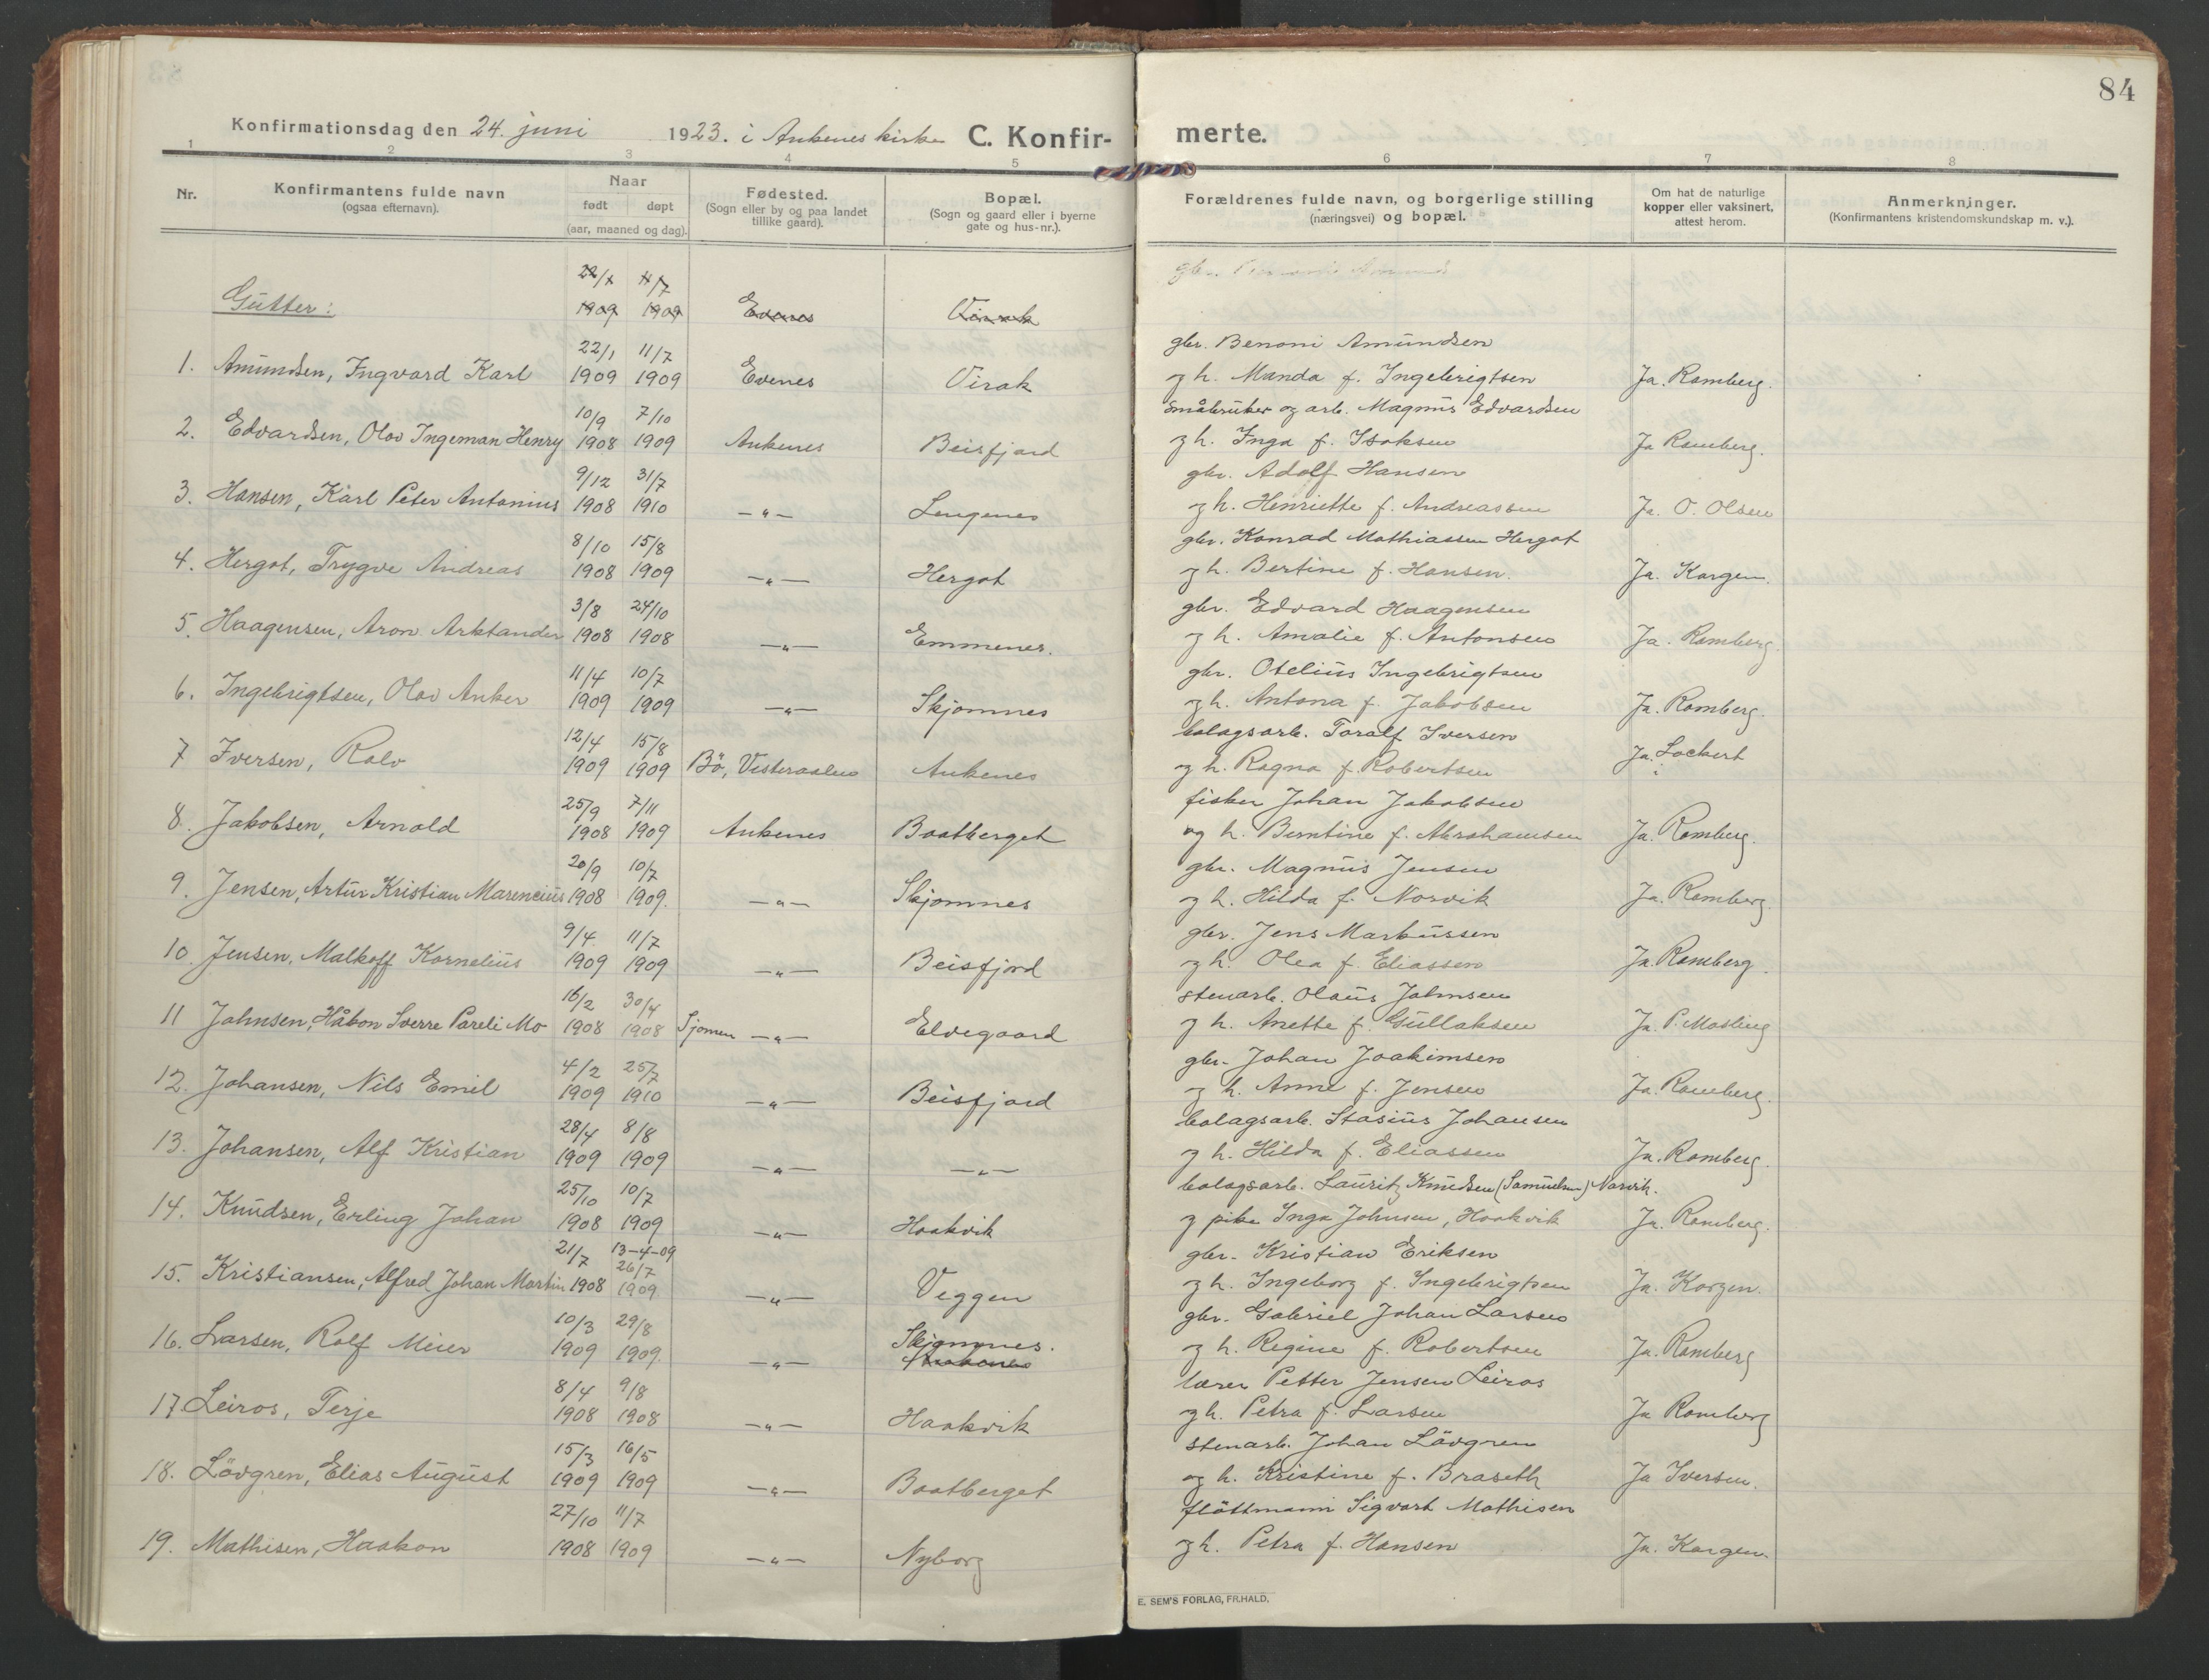 84
Konfirmationsdag den 24. juni 1923. i Ankenes kirke C. Konfir- merte.
1 2 3 4 5 6 7 8
Nr. Konfirmantens fulde navn (ogsaa efternavn). Naar født døpt (aar, maaned og dag). Fødested. (Sogn eller by og paa landet tillike gaard). Bopæl. (Sogn og gaard eller i byerne gate og hus-nr.). Forældrenes fulde navn, og borgerlige stilling (næringsvei) og bopæl. Om hat de naturlige kopper eller vaksinert, attest herom. Anmerkninger. (Konfirmantens kristendomskundskap m. v.).
22/1 11/7
Gutter: 1909 1909 Evenes Virak
22/1 11/7 gbr. Benoni Amundsen
1. Amundsen, Ingvard Karl 1909 1909 Evenes Virak og h. Manda f. Ingebrigtsen Ja. Romberg.
10/9 7/10 småbruker og arb. Magnus Edvardsen
2. Edvardsen, Olav Ingeman Henry 1908 1909 Ankenes Beisfjord og h. Inga f. Isaksen Ja Romberg.
9/12 31/7 gbr. Adolf Hansen
3. Hansen, Karl Peter Antonius 1908 1910 —"— Lengenes og h. Henriette f. Andreassen Ja. O. Olsen
8/10 15/8 gbr. Konrad Mathiassen Hergot
4. Hergot, Trygve Andreas 1908 1909 —"— Hergot og h. Bertine f. Hansen. Ja. Kargen.
3/8 24/10 gbr. Edvard Haagensen
5. Haagensen, Aron Arktander 1908 1908 —"— Emmenes. og h. Amalie f. Antonsen Ja. Romberg.
11/4 10/7 gbr. Otelius Ingebrigtsen
6. Ingebrigtsen, Olav Anker 1909 1909 —"— Skjomnes og h. Antona f. Jakobsen Ja. Romberg.
12/4 15/8 bolagsarb. Toralf Iversen
7 Iversen, Rolv 1909 1909 Bö, Vesteraalen Ankenes og h. Ragna f. Robertsen Ja. Lockert
25/9 7/11 fisker Johan Jakobsen
8. Jakobsen, Arnold 1908 1909 Ankenes Baatberget og h. Berntine f. Abrahamsen Ja. Romberg.
20/9 10/7 gbr. Magnus Jensen
9. Jensen, Artur Kristian Marencius 1908 1909. —"— Skjomnes og h. Hilda f. Norvik Ja. Romberg.
9/4 11/7 gbr. Jens Markussen
10. Jensen, Malkoff Kornelius 1909 1909 —"— Beisfjord og h. Olea f. Eliassen Ja. Romberg.
16/2 30/4 stenarb. Olaus Johnsen
11 Johnsen, Håkon Sverre Pareli Mo 1908 1908 Sjomen —"— Elvegaard og h. Anette f. Gullaksen Ja. P. Mosling
4/2 25/7 gbr. Johan Joakimsen
12. Johansen, Nils Emil 1909 1910 —"— Beisfjord og h. Anne f. Jensen Ja. Romberg.
28/4 8/8 bolagsarb. Stasius Johansen
13. Johansen, Alf Kristian 1909 1909 —"— —"— og h. Hilda f. Eliassen Ja. Romberg.
25/10 10/7 bolagsarb. Lauritz Knudsen (Samuelsen) Narvik.
14. Knudsen, Erling Johan 1908 1909 —"— Haakvik og pike Inga Johnsen, Haakvik Ja. Romberg.
21/7 13-4-09 26/7 gbr. Kristian Eriksen
15. Kristiansen, Alfred Johan Martin 1908 1909 —"— Veggen og h. Ingeborg f. Ingebrigtsen Ja. Korgen.
10/3 29/8 Skjomnes. gbr. Gabriel Johan Larsen
16. Larsen, Rolf Meier 1909 1909. —"— og h. Regine f. Robertsen Ja. Romberg
8/4 9/8 lærer Petter Jensen Leiros
17. Leiros, Terje 1908 1908 —"— Haakvik og h. Petra f. Larsen Ja Romberg
15/3 16/5 stenarb. Johan Lövgren
18. Lövgren, Elias August 1909 1909 —"— Baatberget og h. Kristine f. Braseth Ja Iversen.
27/10 11/7 flöttmann Sigvart Mathisen
19. Mathisen, Haakon 1908 1909 —"— Nyborg og h. Petra f. Hansen Ja. Korgen.
E. SEM'S FORLAG, FR.HALD.